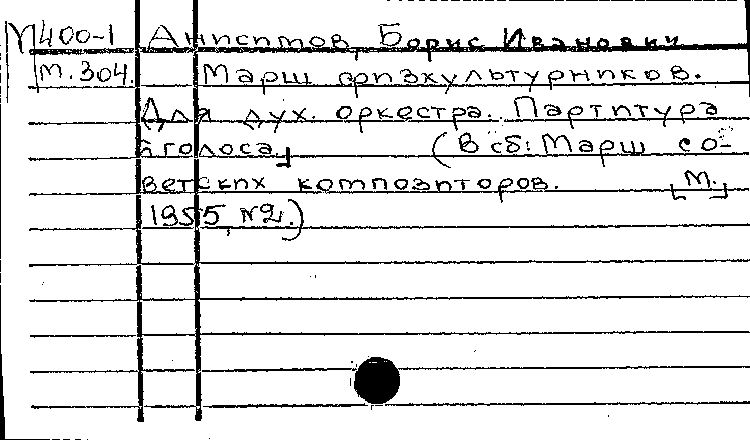 М400-1 Анисимов, Борис Иванович
М.304. Марш физкультурников.
Для дух. оркестра. Партитура
голоса] (В сб: Марш со-
ветских композиторов. [М.]
1955, №2.)